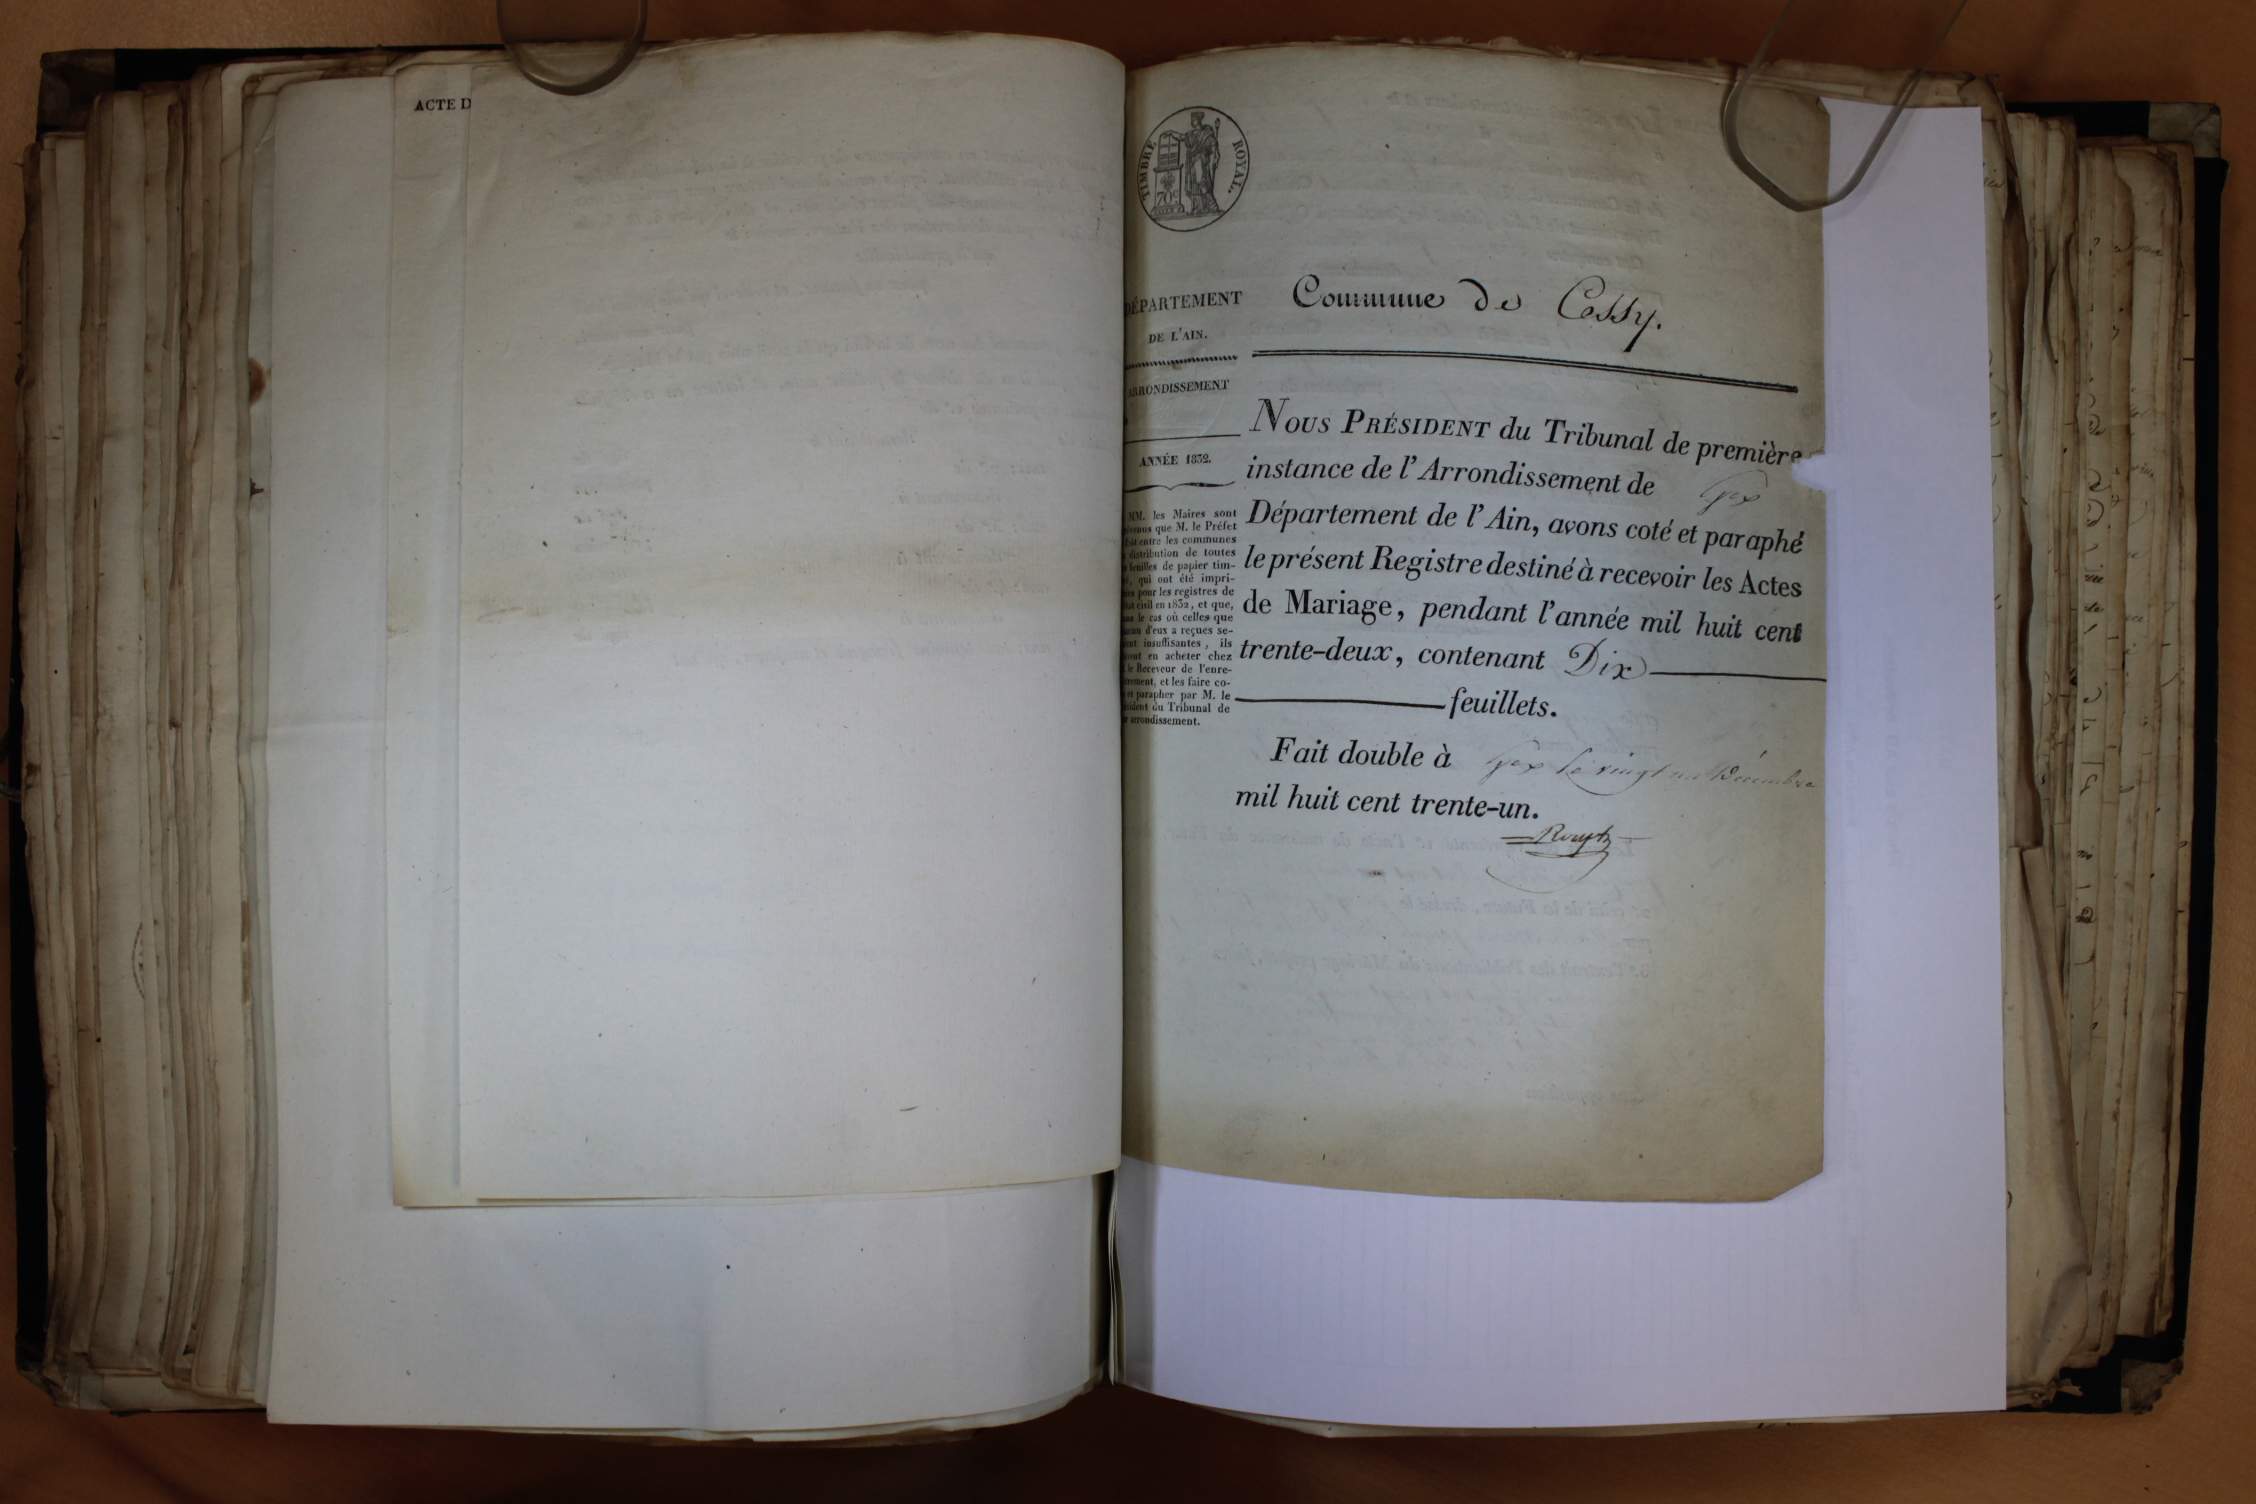 ACTE D
TIMBRE ROYAL.
70c
DÉPARTEMENT
DE L'AIN.
ARRONDISSEMENT
ANNÉE 1832.
MM. les Maires sont
que M. le Préfet
entre les communes
distribution de toutes
feuilles de papier tim-
, qui ont été impri-
pour les registres de
civil en 1832, et que,
le cas où celles que
d'eux a reçues se-
insuffisantes, ils
en acheter chez
le Receveur de l'enre-
, et les faire co-
et parapher par M. le
du Tribunal de
arrondissement.
Commune de Cessy.
NOUS PRÉSIDENT du Tribunal de première
instance de l'Arrondissement de Gex
Département de l'Ain, avons coté et paraphé
le présent Registre destiné à recevoir les Actes
de Mariage, pendant l'année mil huit cent
trente-deux, contenant Dix
feuillets.
Fait double à Gex le vingt un Décembre
mil huit cent trente-un.